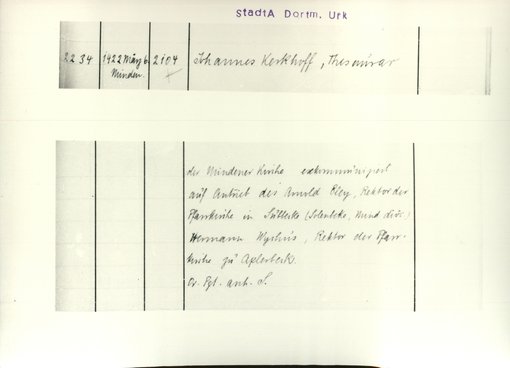 StadtA Dortm. Urk
2234 1422 März 6. 2104 Johannes Kerkhoff, Thesaurar
Minden.
der Mindener Kirche exkommuniziert
auf Antrieb des Arnold Cley, Rektor der
Pfarrkirche in Sülbeck (Solenbeke, Mind. diöc.)
Hermann, Rektor der Pfarr-
kirche zu Aplerbeck.
Or. Pgt. anh. S.